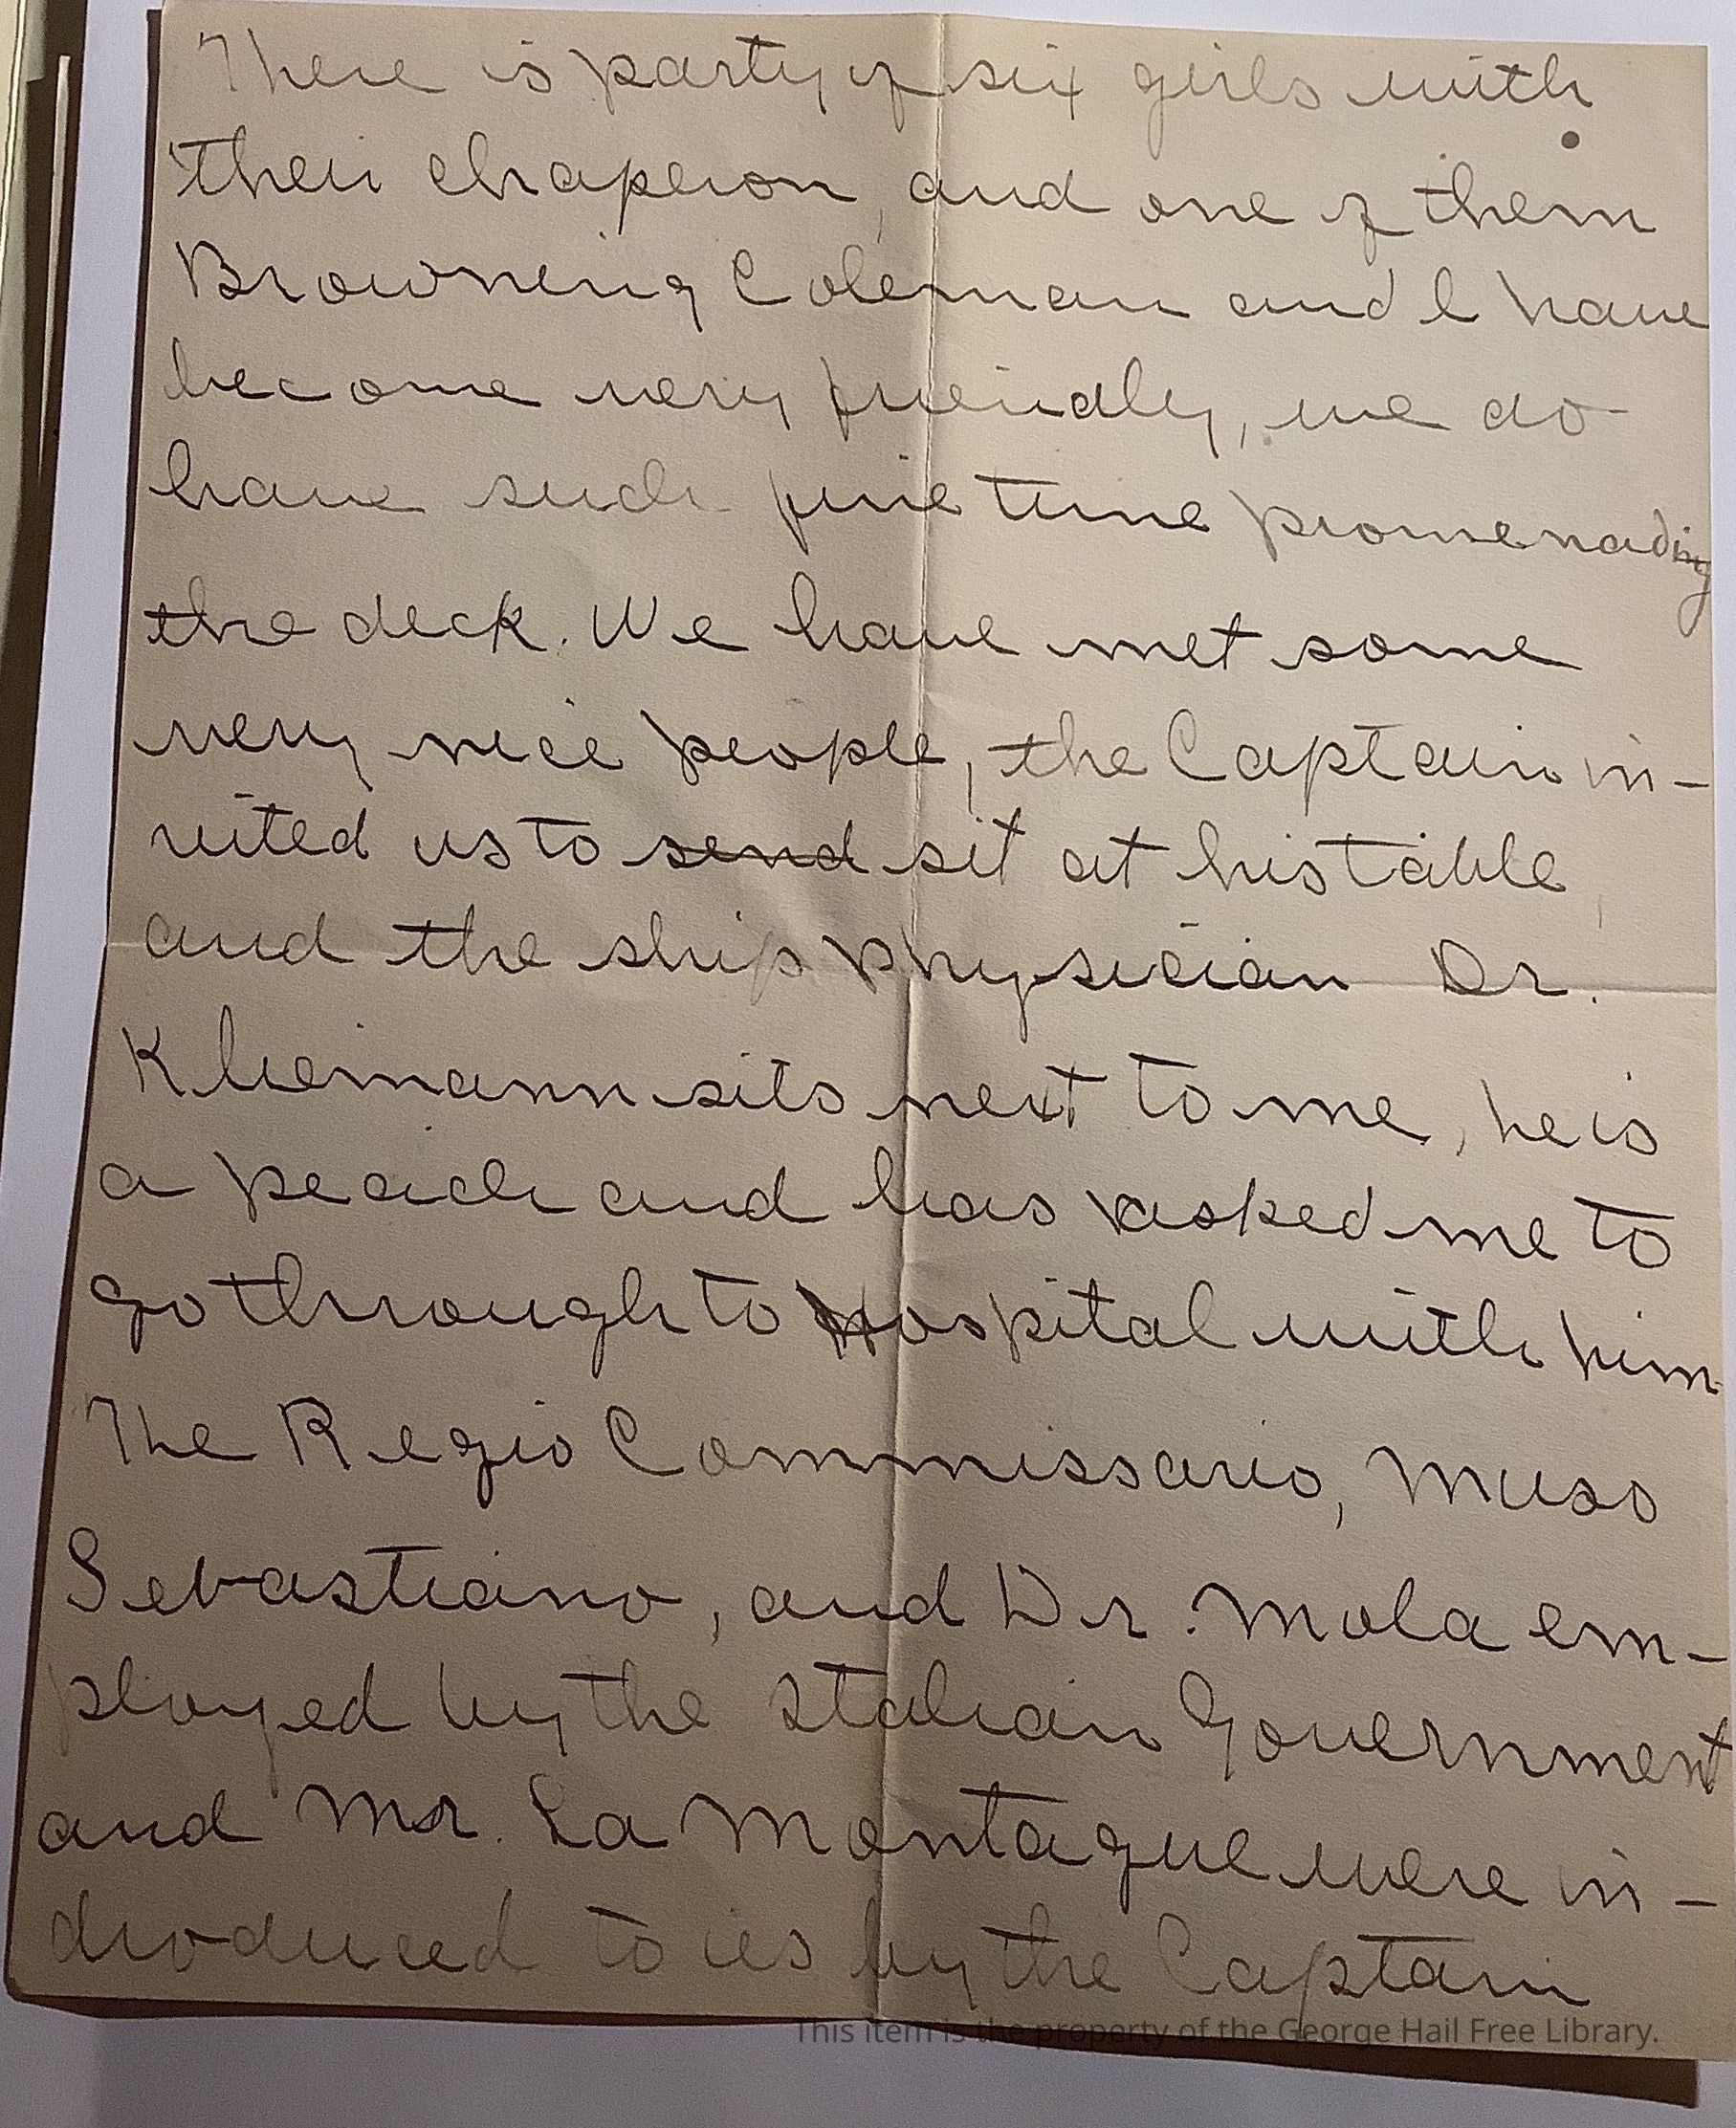 There is party of six girls with
their chaperon, and one of them
Browning Coleman and I have
become very friendly, we do
have such fine time promenading
the deck. We have met some
very nice people, the Captain in-
vited us to send sit at his table,
and the ship physician Dr.
Kliemann sits next to me, he is
a peach and has asked me to
go through to Hospital with him
The Regio Commissario, Muso
Sebastiano, and Dr. Mola em-
ployed by the Italian Government
and Mr. La Montague were in-
droduced to us by the Captain
This item is the property of the George Hail Free Library.